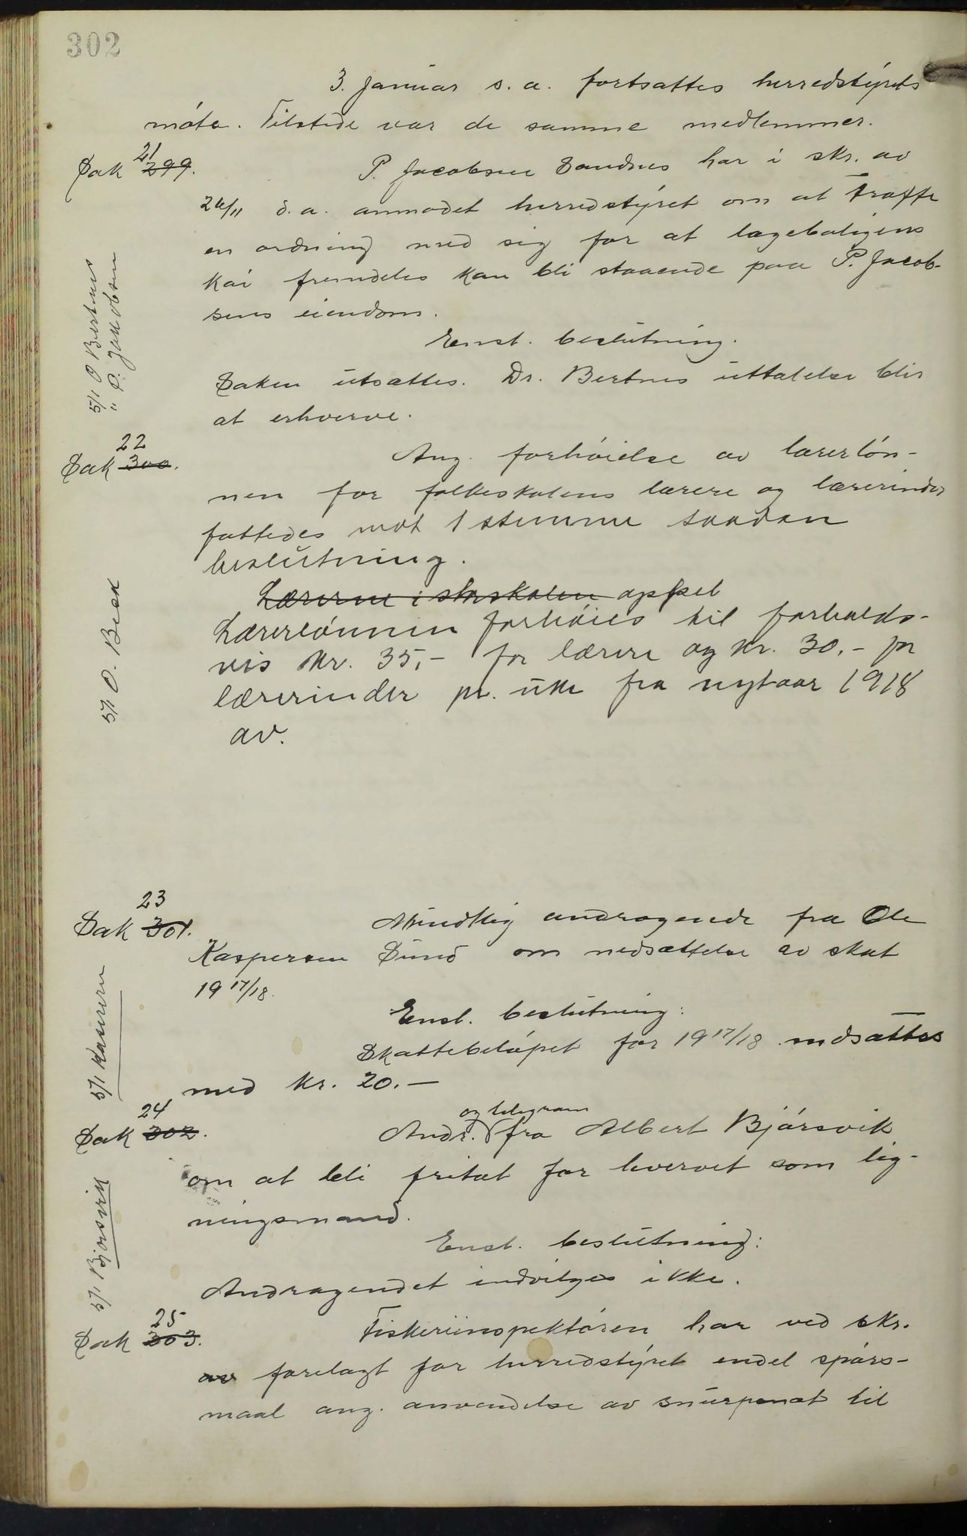 302
3. Januar s. a. fortsattes herredstyrets
møte. Tilstede var de samme medlemmer.
Sak 299. 21
P. Jacobsen Sandnes har i skr. av
26/11 d.a. anmodet herredstyret om at træffe
en ordning med sig for at lægeboligens
kai fremdeles kan bli staaende paa P. Jacob-
sens eiendom.
5/1 O Bertnes
" P. Jakobsen
Enst. beslutning.
Saken utsættes. Dr. Bertnes uttalelse blir
at erhverve.
Sak 300. 22
Ang. forhøielse av lærerløn-
nen for folkeskolens lærere og lærerinder
fattedes mot 1 stemme saadan
beslutning.
Lærerne i storskolen oppebl
Lærerlønnen forhøies til forholds-
vis kr. 35,- for lærere og kr. 30,- for
lærerinder pr. uke fra nytaar 1918
av.
5/1 O. Beck
Sak 301. 23
Mundtlig andragende fra Ole
Kaspersen Sund om nedsættelse av skat
1917/18.
Enst. beslutning:
Skattebeløpet for 1917/18 nedsættes
med kr. 20.-
5/1 Kasserern
Sak 302. 24
og telegram
Andr. fra Albert Bjørsvik
om at bli fritat for hvervet som lig-
ningsmand.
Enst. beslutning:
Andragendet indvilges ikke.
5/1 Bjørsvik
Sak 303. 25
Fiskeriinspektøren har ved skr.
av forelagt for herredstyret endel spørs-
maal ang. anvendelse av snurpenot til